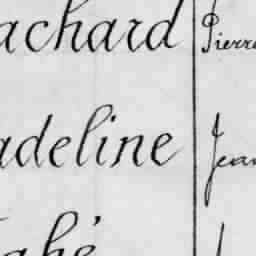 achard Pierre
adeline Jean
ahé J